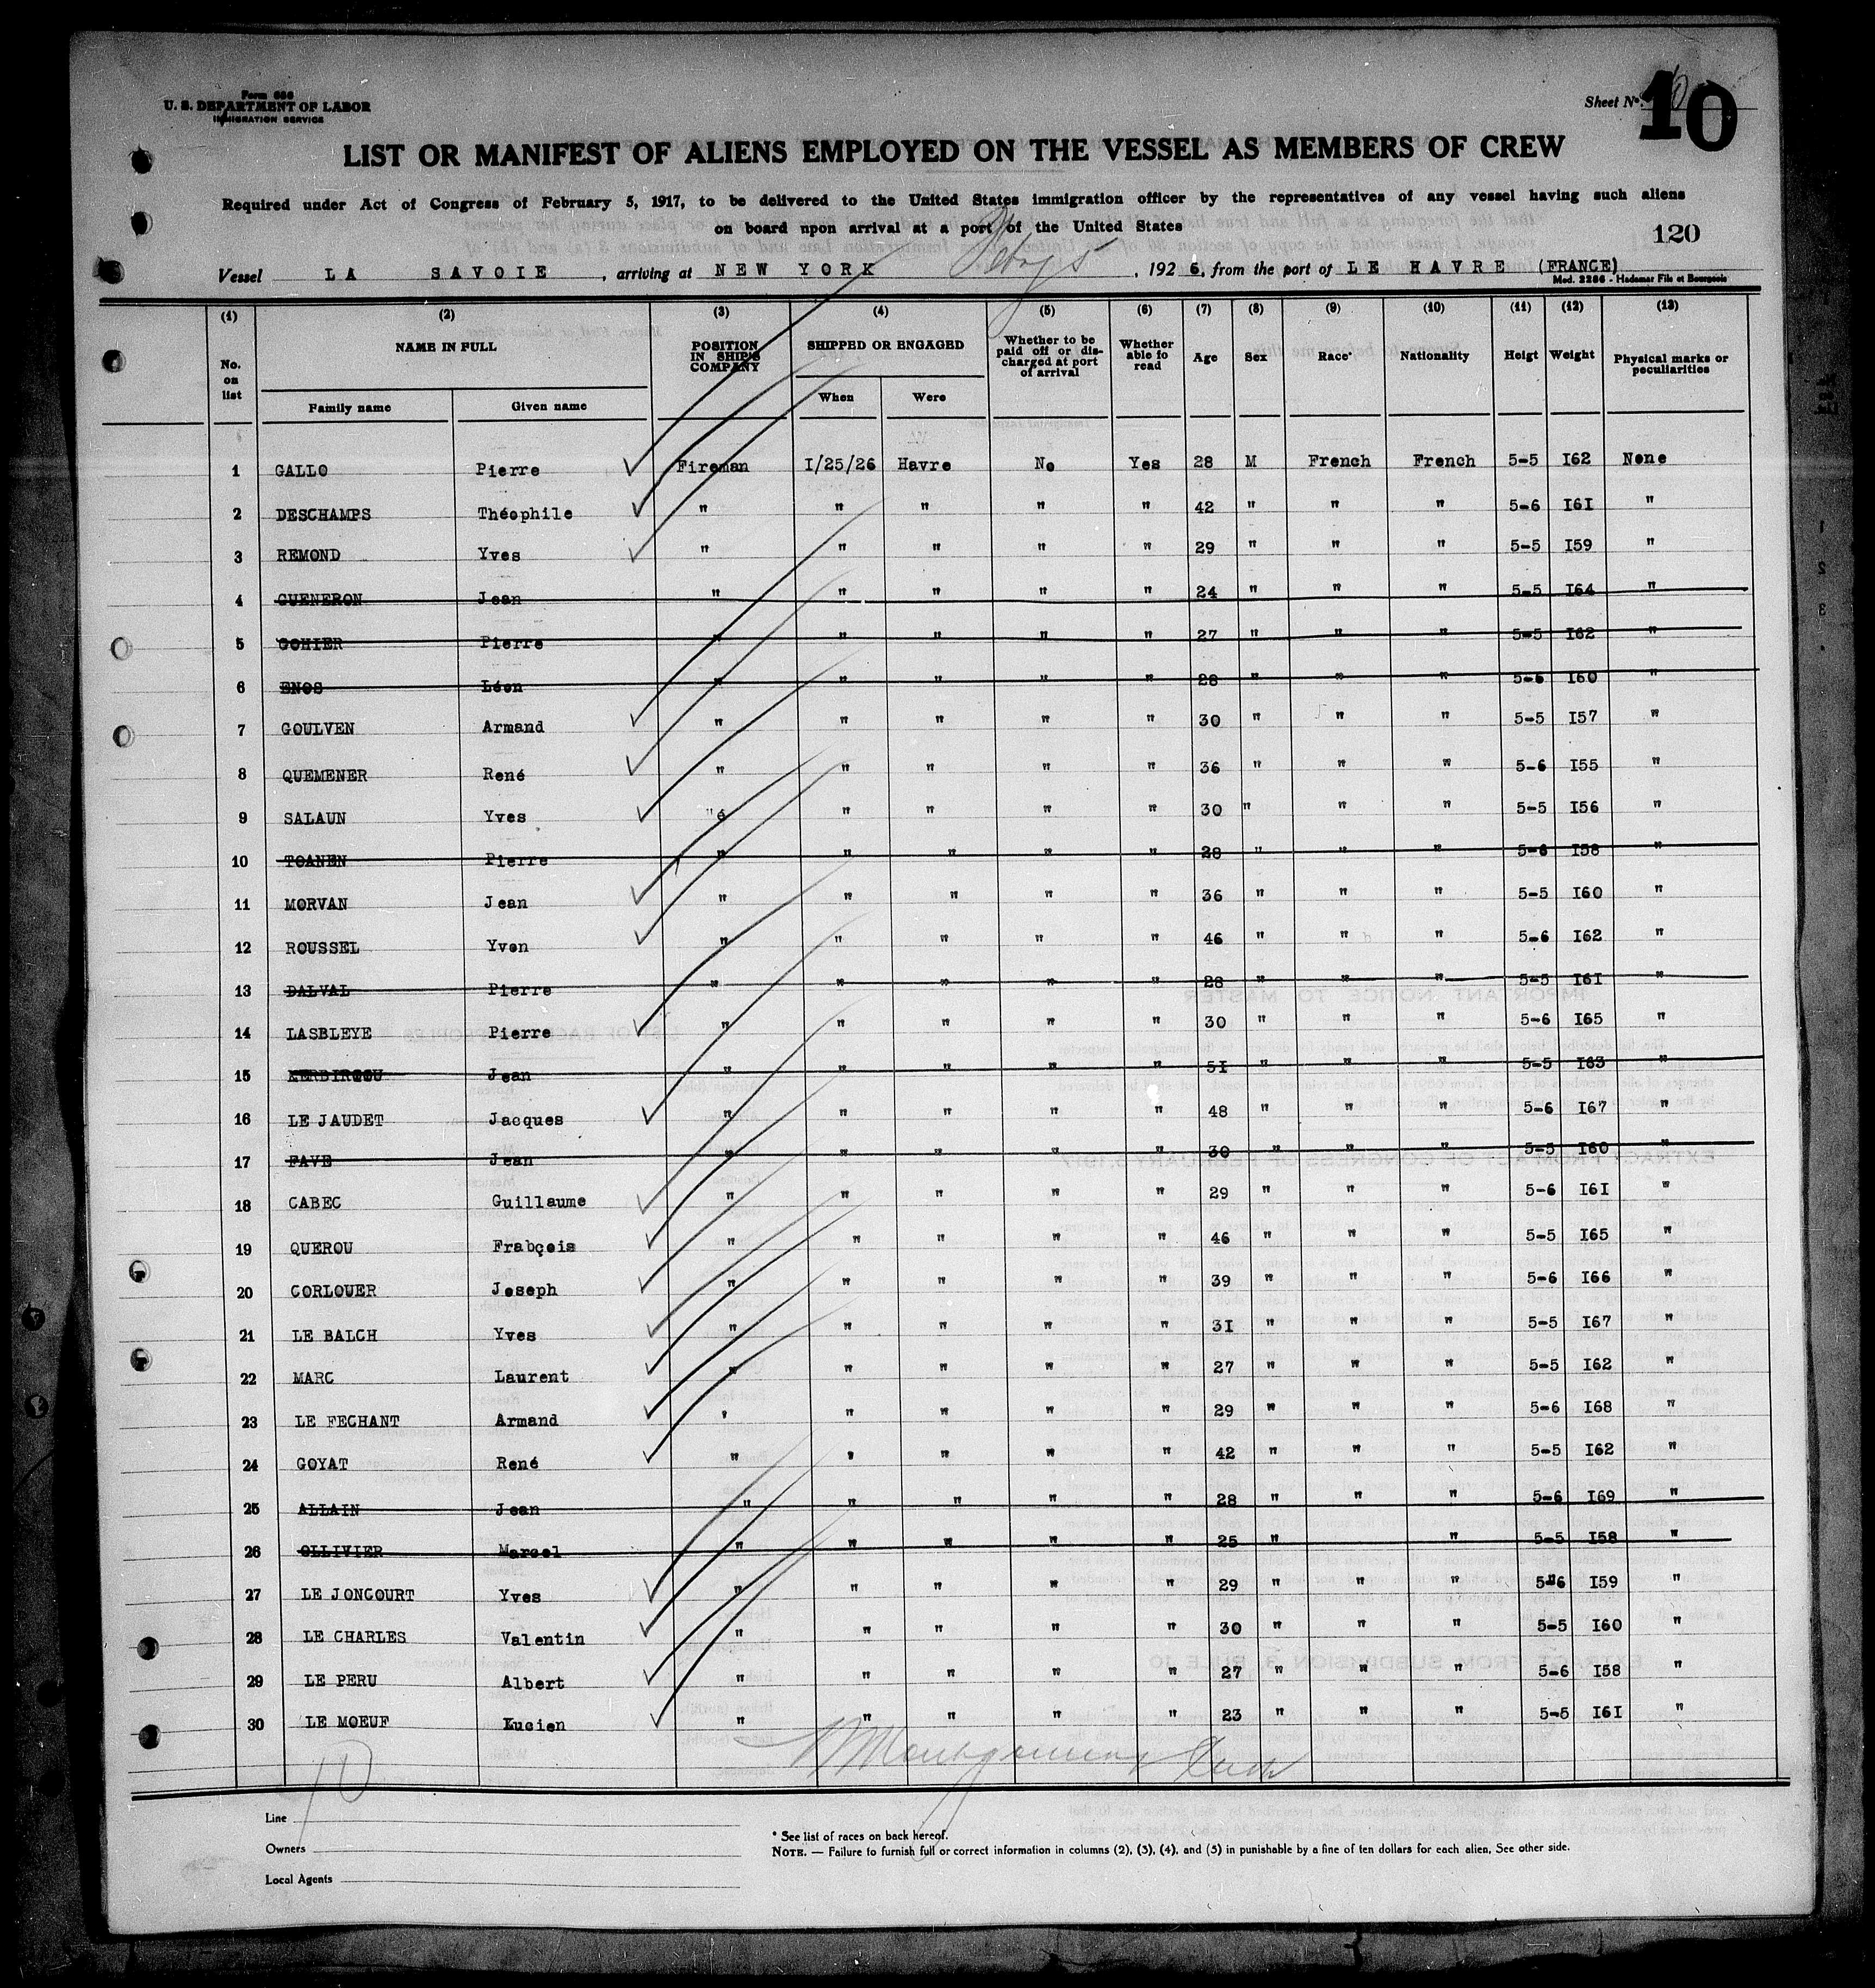 Form 686
U. S. DEPARTMENT OF LABOR
IMMIGRATION SERVICE
Sheet No. 10
LIST OR MANIFEST OF ALIENS EMPLOYED ON THE VESSEL AS MEMBERS OF CREW
Required under Act of Congress of February 5, 1917, to be delivered to the United States immigration officer by the representatives of any vessel having such aliens
on board upon arrival at a port of the United States
120
Vessel LA SAVOIE , arriving at NEW YORK Feby 5 , 1926, from the port of LE HAVRE (FRANCE)
Mod. 2286 - Hademar Fils et Bourgeois
(1) (2) (3) (4) (5) (6) (7) (8) (9) (10) (11) (12) (13)
No. on list NAME IN FULL POSITION IN SHIP'S COMPANY SHIPPED OR ENGAGED Whether to be paid off or discharged at port of arrival Whether able to read Age Sex Race* Nationality Heigt Weight Physical marks or peculiarities
Family name Given name When Were
1 GALLO Pierre Fireman I/25/26 Havre No Yes 28 M French French 5-5 I62 None
2 DESCHAMPS Théophile " " " " " 42 " " " 5-6 I6I "
3 REMOND Yves " " " " " 29 " " " 5-5 I59 "
4 GUENERON Jean " " " " " 24 " " " 5-5 I64 "
5 GOHIER Pierre " " " " " 27 " " " 5-5 I62 "
6 ENOS Léon " " " " " 28 " " " 5-6 I60 "
7 GOULVEN Armand " " " " " 30 " " " 5-5 I57 "
8 QUEMENER René " " " " " 36 " " " 5-6 I55 "
9 SALAUN Yves "é " " " " 30 " " " 5-5 I56 "
10 TOANEN Pierre " " " " " 28 " " " 5-6 I58 "
11 MORVAN Jean " " " " " 36 " " " 5-5 I60 "
12 ROUSSEL Yvon " " " " " 46 " " " 5-6 I62 "
13 DALVAL Pierre " " " " " 28 " " " 5-5 I6I "
14 LASBLEYE Pierre " " " " " 30 " " " 5-6 I65 "
15 KERDIRCOU Jean " " " " " 5I " " " 5-5 I63 "
16 LE JAUDET Jacques " " " " " 48 " " " 5-6 I67 "
17 FAVE Jean " " " " " 30 " " " 5-5 I60 "
18 CABEC Guillaume " " " " " 29 " " " 5-6 I6I "
19 QUEROU Frabçois " " " " " 46 " " " 5-5 I65 "
20 CORLOUER Joseph " " " " " 39 " " " 5-6 I66 "
21 LE BALCH Yves " " " " " 3I " " " 5-5 I67 "
22 MARC Laurent " " " " " 27 " " " 5-5 I62 "
23 LE FECHANT Armand ' " " " " 29 " " " 5-6 I68 "
24 GOYAT René " ' " " " 42 " " " 5-5 I62 "
25 ALLAIN Jean " " " " " 28 " " " 5-6 I69 "
26 OLLIVIER Marcel " " " " " 25 " " 5-5 I58 "
27 LE JONCOURT Yves " " " " " 29 " " " 5-6 I59 "
28 LE CHARLES Valentin " " " " " 30 " " " 5-5 I60 "
29 LE PERU Albert " " " " " 27 " " " 5-6 I58 "
30 LE MOEUF Lucien " " " " " 23 " " " 5-5 I6I "
Montgomery
10
Line
Owners
Local Agents
* See list of races on back hereof.
NOTE. — Failure to furnish full or correct information in columns (2), (3), (4), and (5) in punishable by a fine of ten dollars for each alien, See other side.